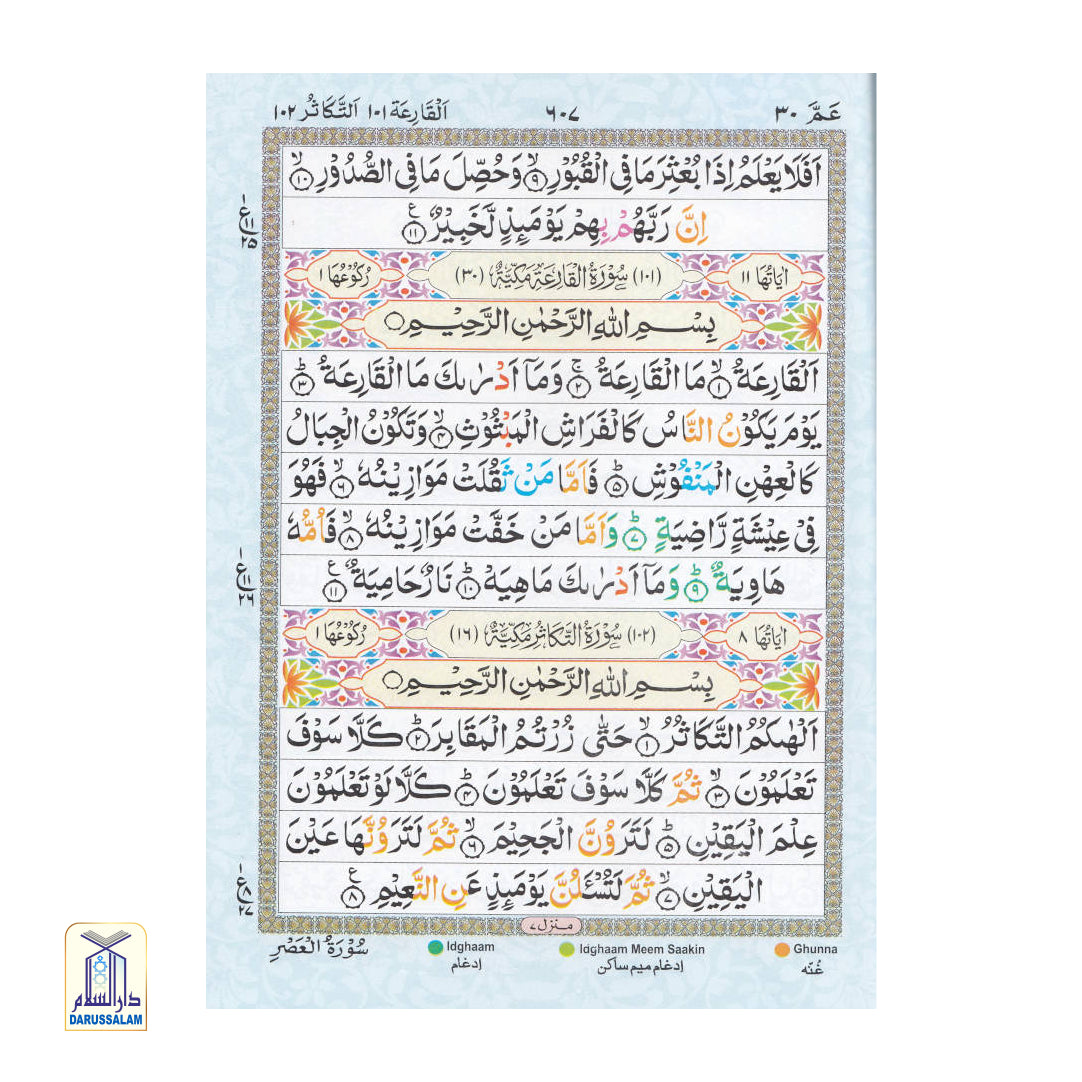 عَمَّ ٣٠ ٦٠٧ اَلْقَارِعَة ١٠١ اَلتَّكَاثُر ١٠٢
اَفَلَا يَعْلَمُ اِذَا بُعْثِرَ مَا فِى الْقُبُوْرِ ۙ ٩ وَحُصِّلَ مَا فِى الصُّدُوْرِ ۙ ١٠
اِنَّ رَبَّهُمْ بِهِمْ يَوْمَئِذٍ لَّخَبِيْرٌ ۠ ١١
ع ١١ ٢٥
اٰيَاتُهَا ١١ (١٠١) سُوْرَةُ الْقَارِعَةِ مَكِّيَّةٌ (٣٠) رُكُوْعُهَا ١
بِسْمِ اللّٰهِ الرَّحْمٰنِ الرَّحِيْمِ
اَلْقَارِعَةُ ۙ ١ مَا الْقَارِعَةُ ۚ ٢ وَمَاۤ اَدْرٰىكَ مَا الْقَارِعَةُ ؕ ٣
يَوْمَ يَكُوْنُ النَّاسُ كَالْفَرَاشِ الْمَبْثُوْثِ ۙ ٤ وَتَكُوْنُ الْجِبَالُ
كَالْعِهْنِ الْمَنْفُوْشِ ؕ ٥ فَاَمَّا مَنْ ثَقُلَتْ مَوَازِيْنُهٗ ۙ ٦ فَهُوَ
فِىْ عِيْشَةٍ رَّاضِيَةٍ ؕ ٧ وَاَمَّا مَنْ خَفَّتْ مَوَازِيْنُهٗ ۙ ٨ فَاُمُّهٗ
هَاوِيَةٌ ؕ ٩ وَمَاۤ اَدْرٰىكَ مَاهِيَهْ ؕ ١٠ نَارٌ حَامِيَةٌ ۠ ١١
ع ١١ ٢٦
اٰيَاتُهَا ٨ (١٠٢) سُوْرَةُ التَّكَاثُرِ مَكِّيَّةٌ (١٦) رُكُوْعُهَا ١
بِسْمِ اللّٰهِ الرَّحْمٰنِ الرَّحِيْمِ
اَلْهٰىكُمُ التَّكَاثُرُ ۙ ١ حَتّٰى زُرْتُمُ الْمَقَابِرَ ؕ ٢ كَلَّا سَوْفَ
تَعْلَمُوْنَ ۙ ٣ ثُمَّ كَلَّا سَوْفَ تَعْلَمُوْنَ ؕ ٤ كَلَّا لَوْ تَعْلَمُوْنَ
عِلْمَ الْيَقِيْنِ ؕ ٥ لَتَرَوُنَّ الْجَحِيْمَ ۙ ٦ ثُمَّ لَتَرَوُنَّهَا عَيْنَ
الْيَقِيْنِ ۙ ٧ ثُمَّ لَتُسْـَٔلُنَّ يَوْمَئِذٍ عَنِ النَّعِيْمِ ۠ ٨
ع ٨ ٢٧
منزل ٧
سُوْرَةُ الْعَصْرِ Idghaam Idghaam Meem Saakin Ghunna
اِدغام اِدغام ميم ساكن غُنّه
دار السلام
DARUSSALAM